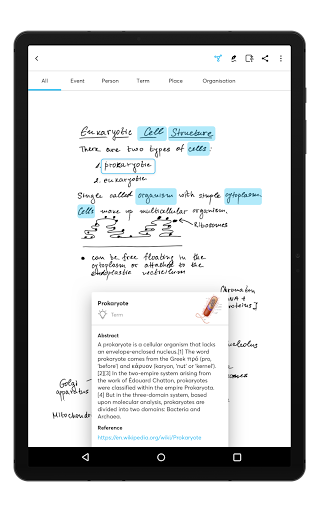 All Event Person Term Place Organisation
Eukaryotic Cell Structure
There are two types of cells:
1. prokaryotic
2. eukaryotic
Single called organism with simple cytoplasm.
Cells make up multicellular organism.
Ribosomes
• can be free floating in the
cytoplasm or attached to the
endoplastic recticulum
Prokaryote
Term
Abstract
A prokaryote is a cellular organism that lacks
an envelope-enclosed nucleus.[1] The word
prokaryote comes from the Greek πρό (pro,
'before') and κάρυον (karyon, 'nut' or 'kernel').
[2][3] In the two-empire system arising from
the work of Édouard Chatton, prokaryotes
were classified within the empire Prokaryota.
[4] But in the three-domain system, based
upon molecular analysis, prokaryotes are
divided into two domains: Bacteria and
Archaea.
Reference
https://en.wikipedia.org/wiki/Prokaryote
Golgi
apparatus